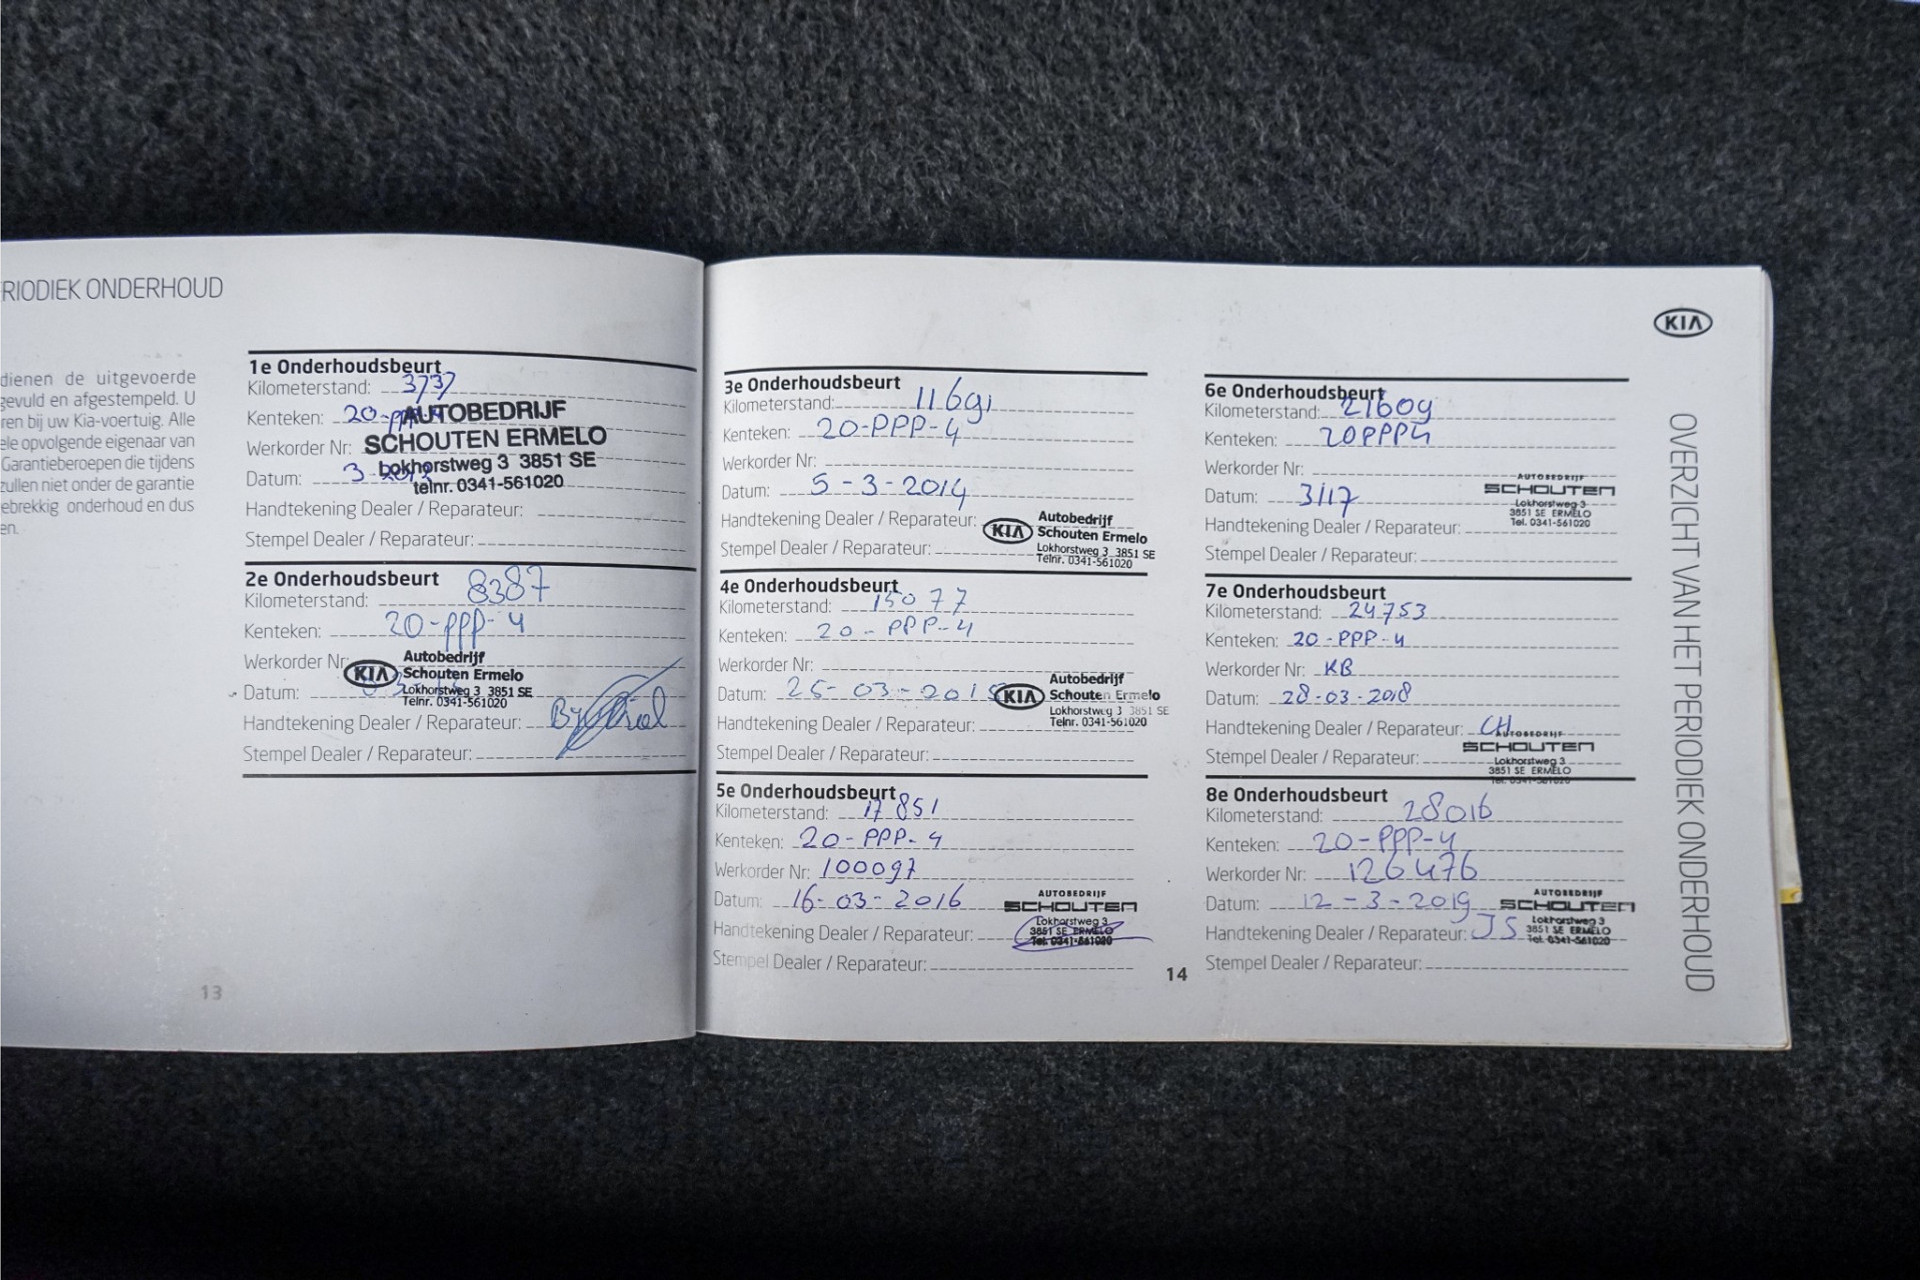 RIODIEK ONDERHOUD
dienen de uitgevoerde
gevuld en afgestempeld. U
ren bij uw Kia-voertuig. Alle
ele opvolgende eigenaar van
Garantieberoepen die tijdens
zullen niet onder de garantie
ebrekkig onderhoud en dus
en.
13
1e Onderhoudsbeurt
Kilometerstand: 3737
Kenteken: 20-PPP-4
AUTOBEDRIJF
Werkorder Nr:
SCHOUTEN ERMELO
Lokhorstweg 3 3851 SE
Datum: 3-2012
telnr. 0341-561020
Handtekening Dealer / Reparateur:
Stempel Dealer / Reparateur:
2e Onderhoudsbeurt
Kilometerstand: 8387
Kenteken: 20-PPP-4
Werkorder Nr:
KIA Autobedrijf
Schouten Ermelo
Lokhorstweg 3 3851 SE
Telnr. 0341-561020
Datum:
Handtekening Dealer / Reparateur:
Stempel Dealer / Reparateur:
3e Onderhoudsbeurt
Kilometerstand: 11691
Kenteken: 20-PPP-4
Werkorder Nr:
Datum: 5-3-2014
Handtekening Dealer / Reparateur:
KIA Autobedrijf
Schouten Ermelo
Lokhorstweg 3 3851 SE
Telnr. 0341-561020
Stempel Dealer / Reparateur:
4e Onderhoudsbeurt
Kilometerstand: 15077
Kenteken: 20-PPP-4
Werkorder Nr:
Datum: 25-03-2015
KIA Autobedrijf
Schouten Ermelo
Lokhorstweg 3 3851 SE
Telnr. 0341-561020
Handtekening Dealer / Reparateur:
Stempel Dealer / Reparateur:
5e Onderhoudsbeurt
Kilometerstand: 17851
Kenteken: 20-PPP-4
Werkorder Nr: 100097
Datum: 16-03-2016
AUTOBEDRIJF
SCHOUTEN
Lokhorstweg 3
3851 SE ERMELO
Tel. 0341-561020
Handtekening Dealer / Reparateur:
Stempel Dealer / Reparateur:
14
KIA
6e Onderhoudsbeurt
Kilometerstand: 21609
Kenteken: 20PPP4
Werkorder Nr:
Datum: 3/17
AUTOBEDRIJF
SCHOUTEN
Lokhorstweg 3
3851 SE ERMELO
Tel. 0341-561020
Handtekening Dealer / Reparateur:
Stempel Dealer / Reparateur:
7e Onderhoudsbeurt
Kilometerstand: 24753
Kenteken: 20-PPP-4
Werkorder Nr: KB
Datum: 28-03-2018
Handtekening Dealer / Reparateur: CH
AUTOBEDRIJF
SCHOUTEN
Lokhorstweg 3
3851 SE ERMELO
Tel. 0341-561020
Stempel Dealer / Reparateur:
8e Onderhoudsbeurt
Kilometerstand: 28016
Kenteken: 20-PPP-4
Werkorder Nr: 126476
Datum: 12-3-2019
AUTOBEDRIJF
SCHOUTEN
Lokhorstweg 3
3851 SE ERMELO
Tel. 0341-561020
Handtekening Dealer / Reparateur: JS
Stempel Dealer / Reparateur:
OVERZICHT VAN HET PERIODIEK ONDERHOUD